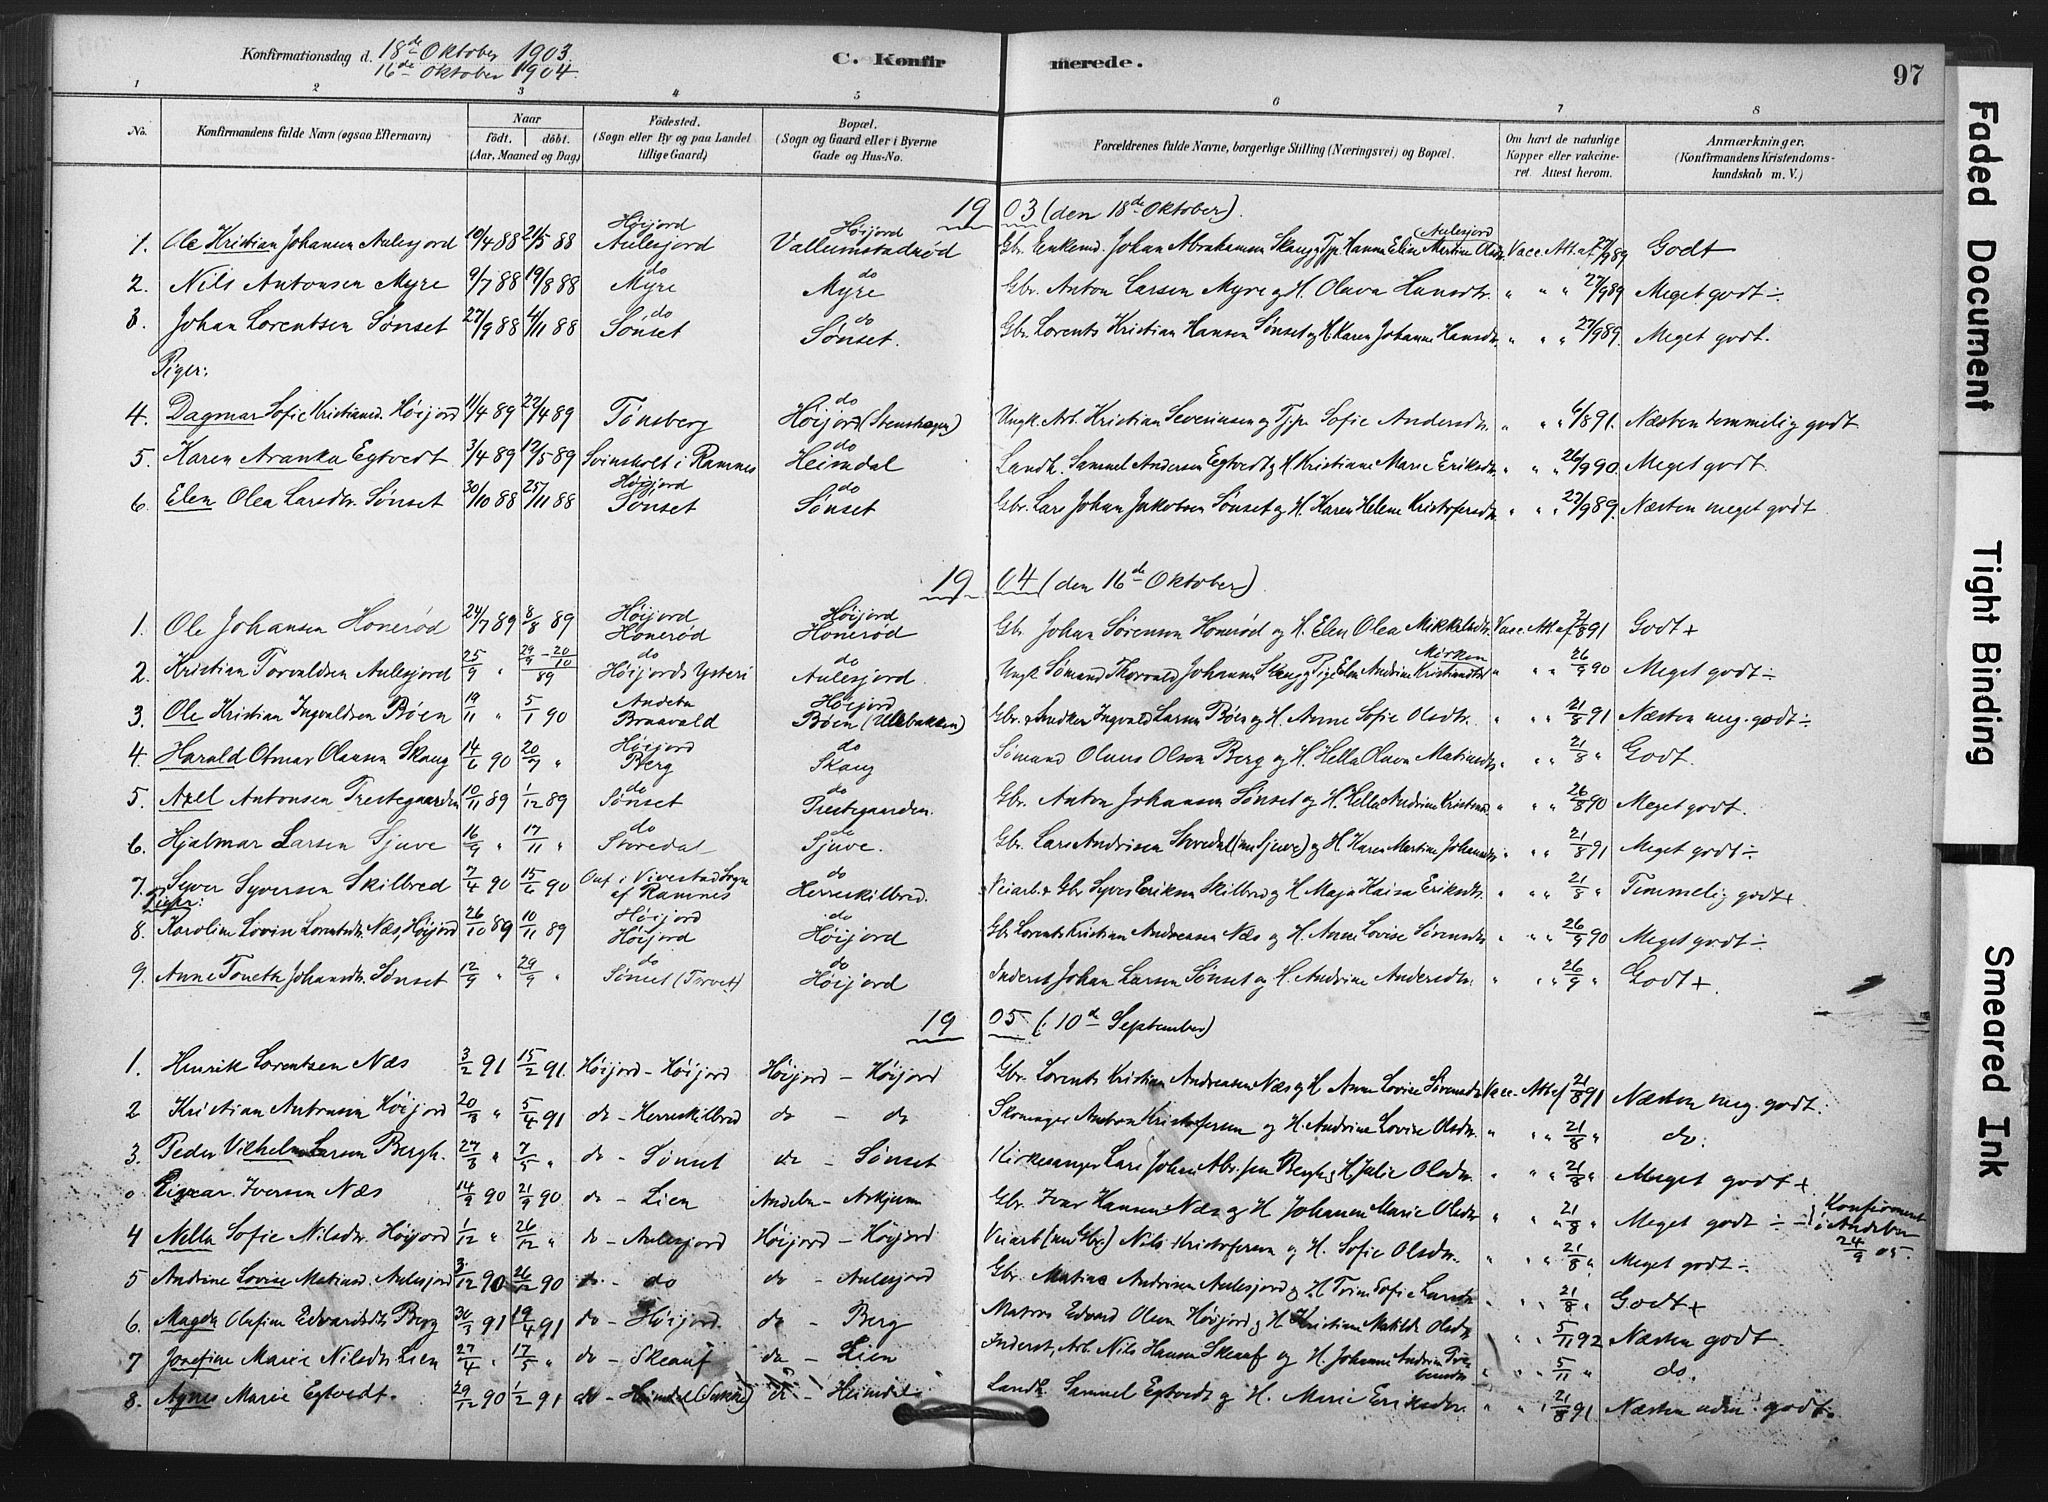 Konfirmationsdag d. 18de Oktober 1903.
16de Oktober 1904.
C. Konfirmerede.
97
1 2 3 4 5 6 7 8
No. Konfirmandens fulde Navn (ogsaa Efternavn) Naar født. døbt. (Aar, Maaned og Dag) Fødested. (Sogn eller By og paa Landet tillige Gaard) Bopæl. (Sogn og Gaard eller i Byerne Gade og Hus-No. Forældrenes fulde Navne, borgerlige Stilling (Næringsvei) og Bopæl. Om havt de naturlige Kopper eller vakcineret. Attest herom. Anmærkninger. (Konfirmandens Kristendomskundskab m. V.)
1903 (den 18de Oktober).
1. Ole Kristian Johansen Aulesjord 10/4 88 21/5 88 Høijord Aulesjord Høijord Vallumstadrød Gbr. Enkemd. Johan Abrahamsen Skaug og Pige Hanna Eline Martine Olsdr. (Aulesjord) Vacc. Att. af 27/9 89 Godt
2. Nils Antonsen Myre 9/7 88 19/8 88 do Myre do Myre Gbr. Anton Larsen Myre og H. Olava Hansdr. " " " 27/9 89 Meget godt ÷
3. Johan Lorentsen Sønset 27/9 88 4/11 88 do Sønset do Sønset. Gbr. Lorents Kristian Hansen Sønset og H. Karen Johanne Hansdr. " " " 27/9 89. Meget godt.
Piger:
4. Dagmar Sofie Kristiansd. Høijord 11/4 89 22/4 89 Tønsberg do Høijord (Stenshagen) Ungk. Arb. Kristian Severinsen og Pige Sofie Andersdr. " " " 6/8 91. Næsten temmelig godt
5. Karen Aranka Egtvedt 3/4 89 12/5 89 Svinsholt i Ramnes do Heimdal Landh. Samuel Andersen Egtvedt og H. Kristiane Marie Eriksdr. " " " 26/9 90 Meget godt
6. Elen Olea Larsdtr. Sønset 30/10 88 25/11 88 Høijord Sønset do Sønset Gbr. Lars Johan Jakobsen Sønset og H. Karen Helene Kristofersdtr. " " " 27/9 89. Næsten meget godt
1904 (den 16de Oktober)
1. Ole Johansen Honerød 24/7 89 8/8 89 Høijord Honerød Høijord Honerød Gbr. Johan Sørensen Honerød og H. Elen Olea Mikkelsdtr. Vacc. Att. af 21/8 91 Godt +
2. Kristian Torvaldsen Aulesjord 25/9 " 29/9 - 20/10 89 do Høijords Ysteri do Aulesjord. Ungk. Sømand Thorvald Johansen Skaug og Pige Elen Andrine Kristiansdtr " " " 26/9 90 Meget godt ÷
3. Ole Kristian Ingvaldsen Bøen 19/11 " 5/1 90 Andebu Braavald Høijord Bøen (Ullebakken) Gbr. & Snedker Ingvald Larsen Bøen og H. Anne Sofie Olsdtr. " " " 21/8 91 Næsten meg. godt ÷
4. Harald Otmar Olausen Skaug 14/6 90 20/7 " Høijord Berg do Skaug Sømand Olaus Olsen Berg og H. Hella Olava Matiasdtr " " " 21/8 " Godt.
5. Axel Antonsen Prestegaarden 10/11 89 1/12 89 do Sønset do Prestegaarden. Gbr. Anton Johansen Sønset og H. Hella Andrine Kristiansd " " " 26/8 90 Meget godt.
6. Hjalmar Larsen Sjuve 16/9 " 17/11 " do Storedal do Sjuve. Gbr. Lars Andrisen Storedal (nu Sjuve) og H. Karen Martine Johansdtr " " " 21/8 91 Meget godt ÷
7. Syver Syversen Skilbred 7/4 90 15/6 90 Ouf i Vivestad Sogn af Ramnes do Herreskilbred. Veiarb. & Gbr. Syver Eriksen Skilbred og H. Maja Kaisa Eriksdtr. " " " 21/8 " Temmelig godt +
Piger:
8. Karoline Lovise Lorentsdtr. Næs, Høijord 26/10 89 10/11 89 Høijord Høijord do Høijord Gbr. Lorents Kristian Andreassen Næs og H. Anne Lovise Sørensdtr " " " 26/9 90 Meget godt ÷
9. Anne Toneth Johansdtr. Sønset 12/9 " 29/9 " do Sønset (Torvet) do Høijord Inderst Johan Larsen Sønset og H. Andrine Andersdtr. " " " 26/9 " Godt +
1905 (: 10de September)
1. Henrik Lorentsen Næs 3/2 91 15/2 91. Høijord - Høijord Høijord - Høijord Gbr. Lorents Kristian Andreasen Næs og H. Anne Lovise Sørensdtr Vacc. Att. af 21/8 91 Næsten meg. godt.
2 Kristian Antonsen Høijord 20/3 " 5/4 91 do - Herreskilbred do - do Skomager Anton Kristofersen og H. Andrine Lovise Olsdtr. " " " 21/8 " do.
3. Peder Vilhelm Larsen Bergh. 27/3 " 7/5 " do - Sønset do - Sønset Kirkesanger Lars Johan Abr.sen Bergh og H. Julie Olsdtr. " " " 21/8 " Meget godt +
o Einar Iversen Næs 14/9 90 21/9 90 do - Lien Andebu - Askjum Gbr. Ivar Hansen Næs og H. Johanne Marie Olsdtr " " " 21/8 Meget godt ÷ - } Konfirmeret i Andebu 24/9 05.
4 Nella Sofie Nilsdtr. Høijord 1/12 " 26/12 " do - Aulesjord Høijord - Høijord Veiarb (nu Gbr.) Nils Kristofersen og H. Sofie Olsdtr. " " " 21/8 " Meget godt ÷
5 Andrine Lovise Matiasd. Aulesjord 3/12 90 26/12 90 do - do do - Aulesjord Gbr. Matias Andrisen Aulesjord og H. Trine Sofie Larsdtr " " " 21/8 " Godt +
6. Magda Olufine Edvardsdtr. Berg 30/3 91 19/4 91 do - Høijord. do - Berg Matros Edvard Olsen Høijord og H. Kristine Matilde Olsdtr " " " 5/11 92 Næsten godt.
7 Josefine Marie Nilsdtr. Lien 27/4 " 17/5 " do - Skeauf do - Lien Inderst, Arb. Nils Hansen Skeauf og H. Johanne Andrine Prebensdtr. " " " 5/11 " do.
8. Agnes Marie Egtvedt. 29/12 90 1/2 91 do - Heimdal do - Heimdal Landh. Samuel Egtvedt og H. Marie Eriksdtr. " " " 21/8 91 Næsten uden godt.
Faded Document
Tight Binding
Smeared Ink